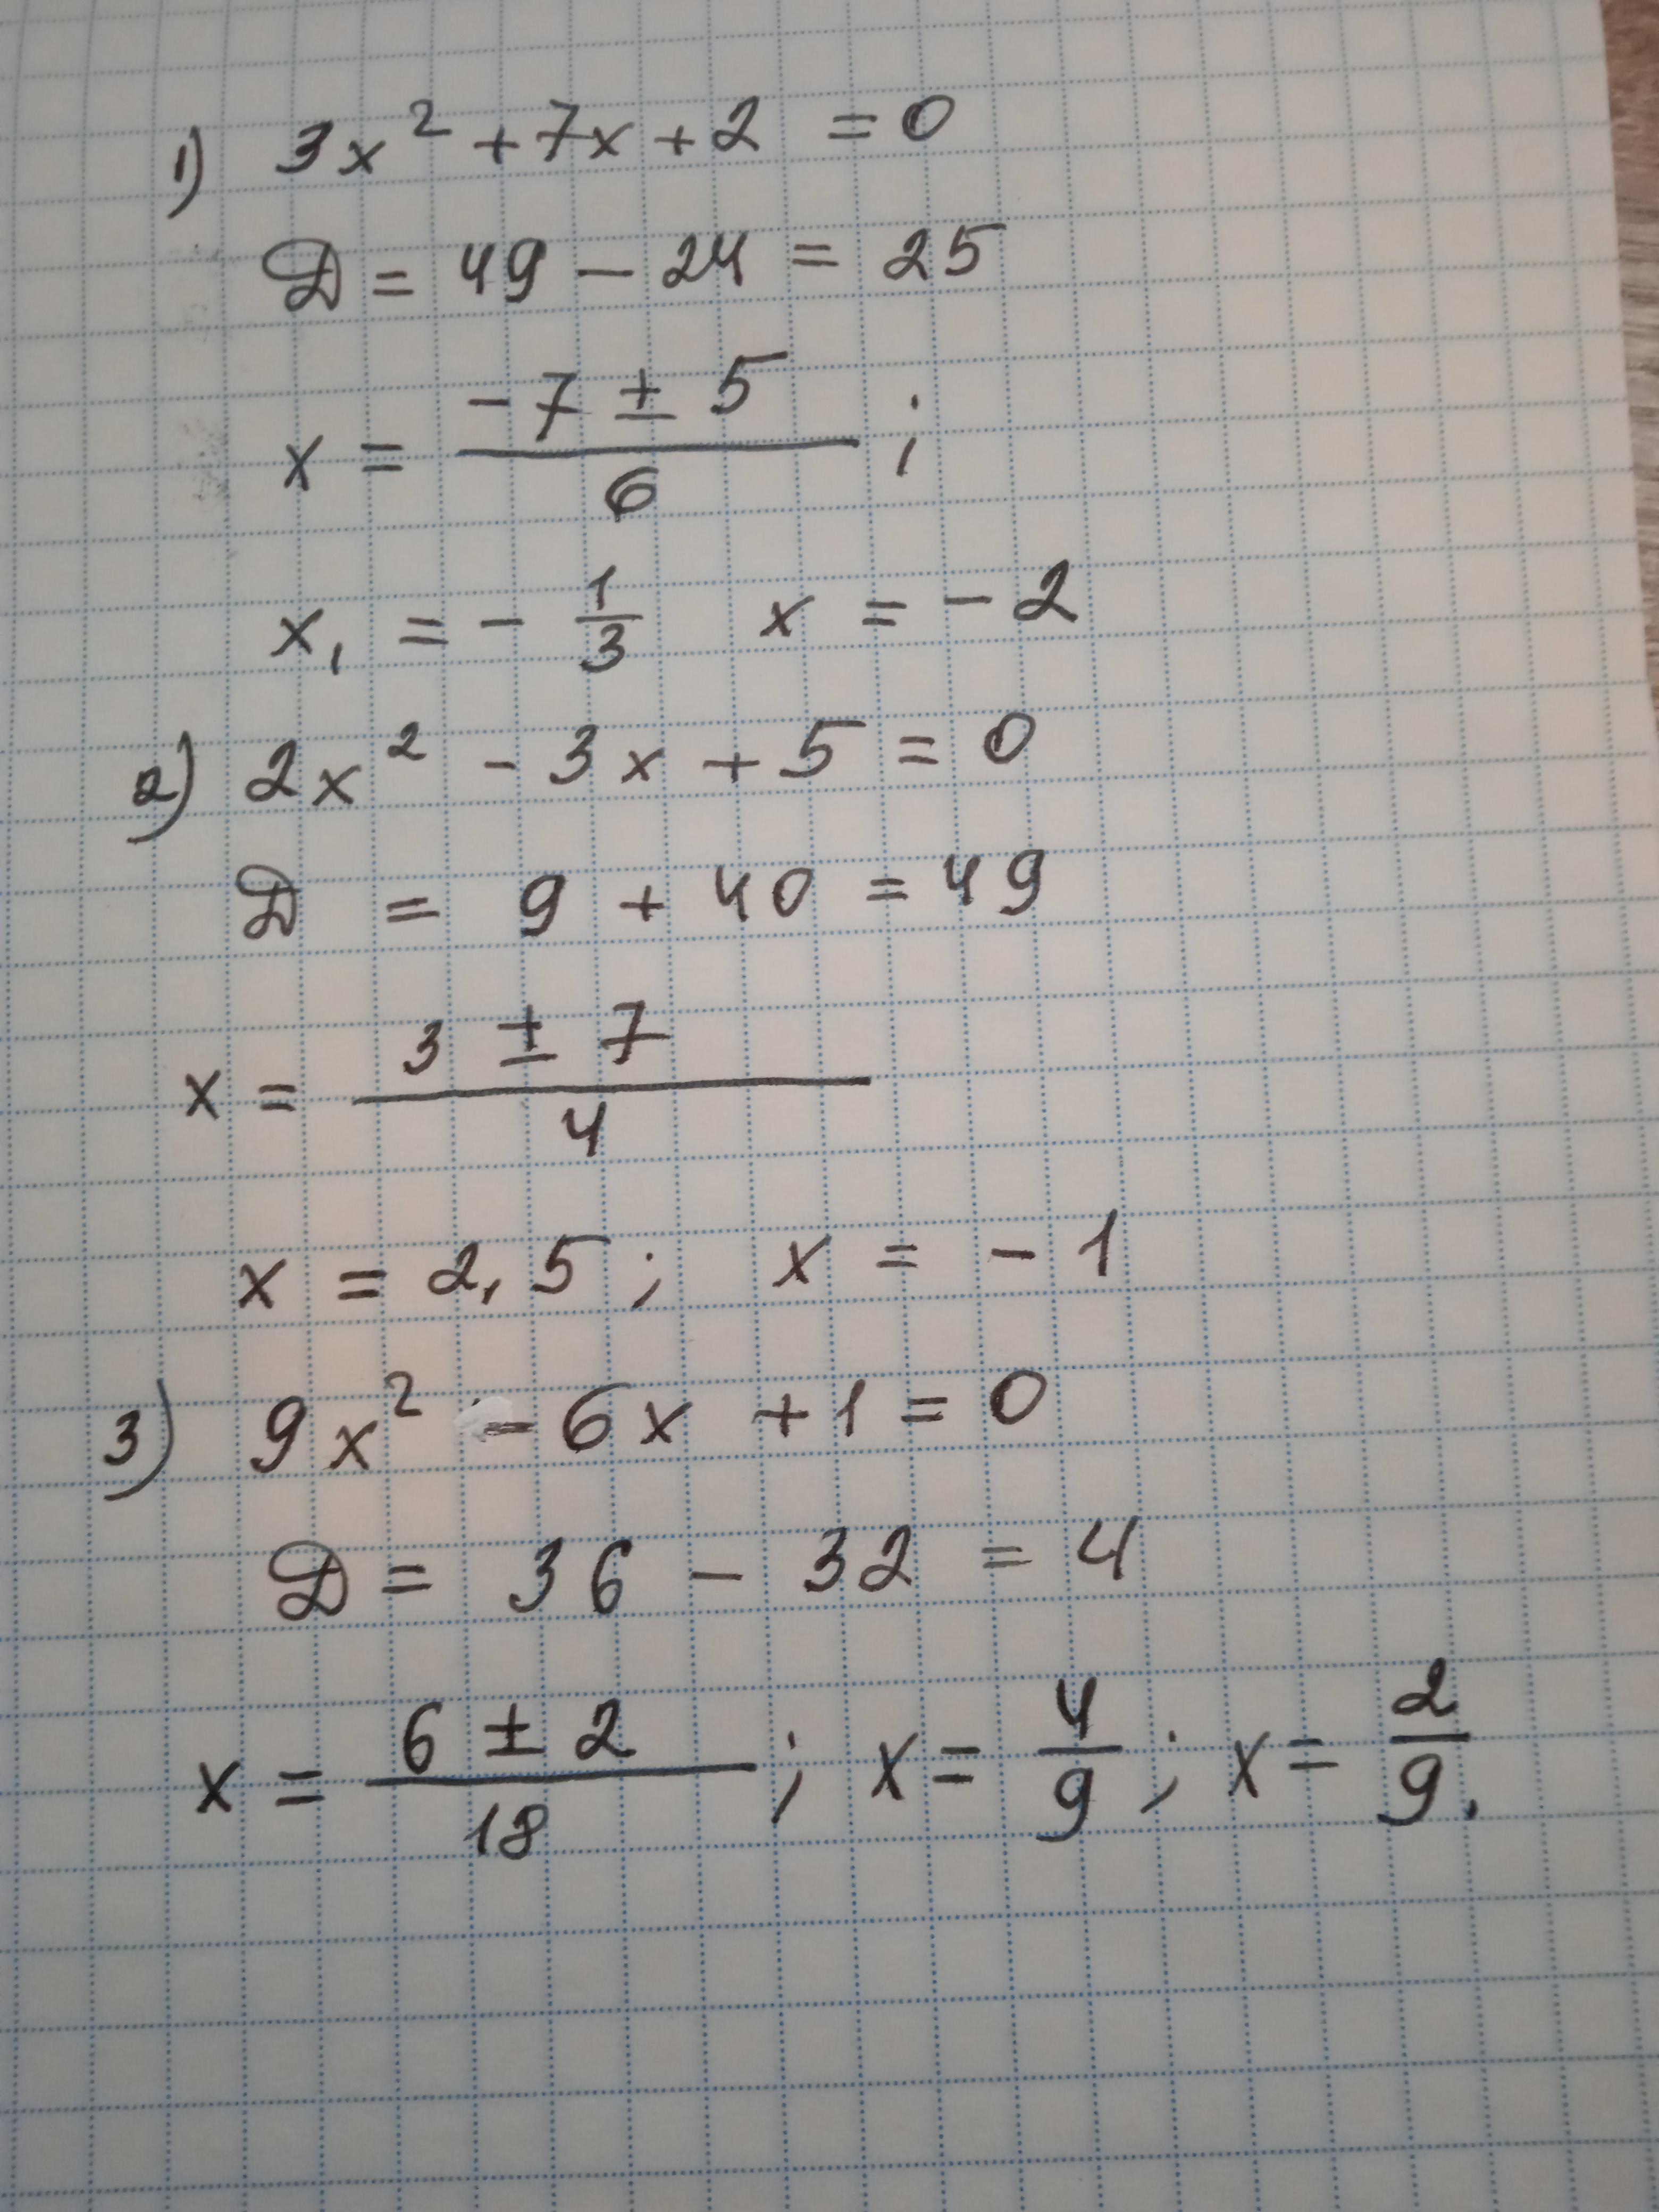 1) 3x² + 7x + 2 = 0
D = 49 − 24 = 25
x = (−7 ± 5)/6 ;
x₁ = − 1/3 x = − 2
2) 2x² − 3x + 5 = 0
D = 9 + 40 = 49
x = (3 ± 7)/4
x = 2,5 ; x = − 1
3) 9x² − 6x + 1 = 0
D = 36 − 32 = 4
x = (6 ± 2)/18 ; x = 4/9 ; x = 2/9 .